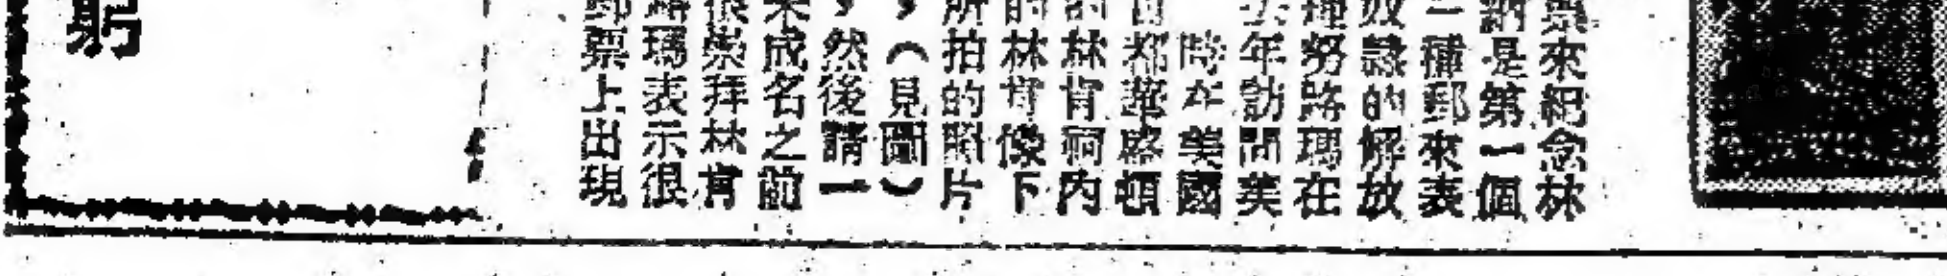 票來紀念林
納是第一個
補郵來表
奴隸的解放
理努路瑪在
年訪問美
時在美國
首都華盛頓
的林肯祠内
的林肯像下
所拍的照片
，（見圖）
，然後請一
未成名之前
很崇拜林肯
路瑪表示很
郵票上出現